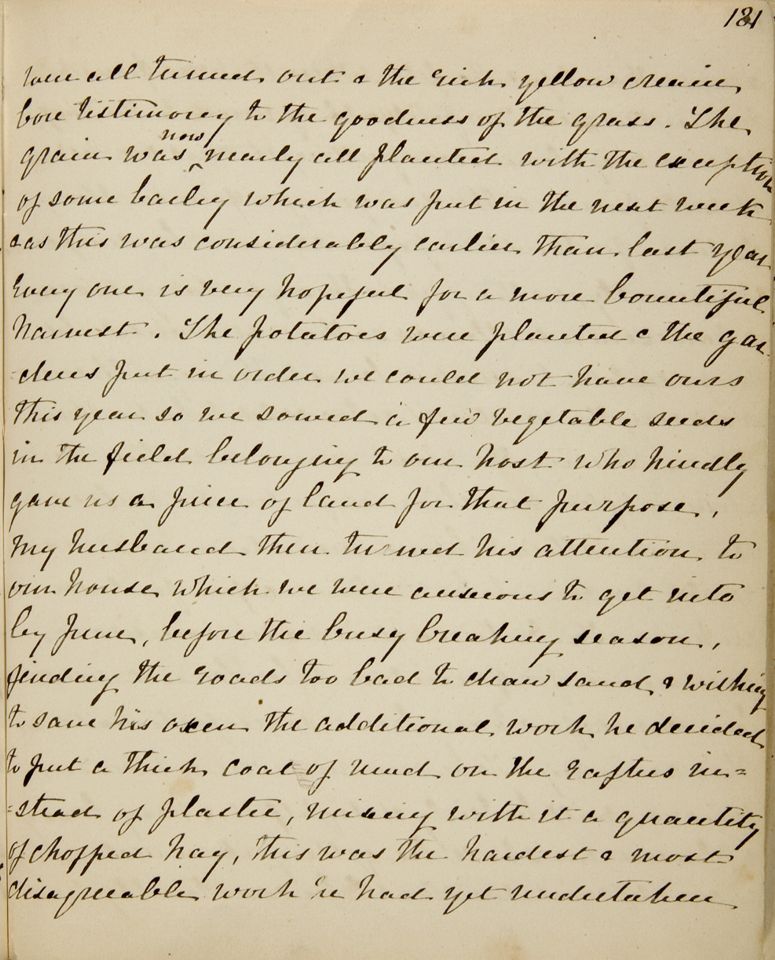 121
were all turned out & the rich yellow cream
bore testimony to the goodness of the grass. The
now
grain was ^ nearly all planted with the exception
of some barley which was put in the next week
as this was considerably earlier than last year
every one is very hopeful for a more bountiful
harvest. The potatoes were planted & the gar
-dens put in order we could not have ours
this year so we sowed a few vegetable seeds
in the field belonging to our host who kindly
gave us a piece of land for that purpose,
My husband then turned his attention to
our house which we were anxious to get into
by June, before the busy breaking season,
finding the roads too bad to draw sand & wishing
to save his oxen the additional work he decided
to put a thick coat of mud on the rafters in=
=stead of plaster, mixing with it a quantity
of chopped hay, this was the hardest & most
disagreeable work he had yet undertaken